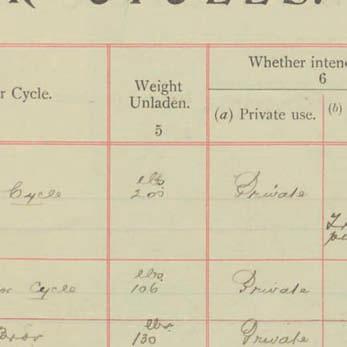 CYCLES.
Whether
6
r Cycle.
Weight
Unladen.
5
(a) Private use.
(b)
Cycle
lbs
200
Private
Cycle
lbs
106
Private
lbs
130
Private